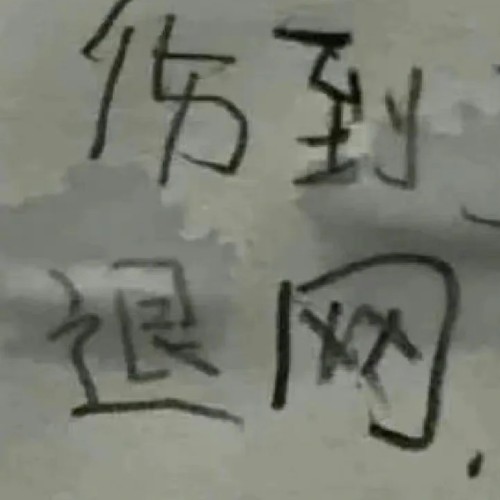 伤到
退网.